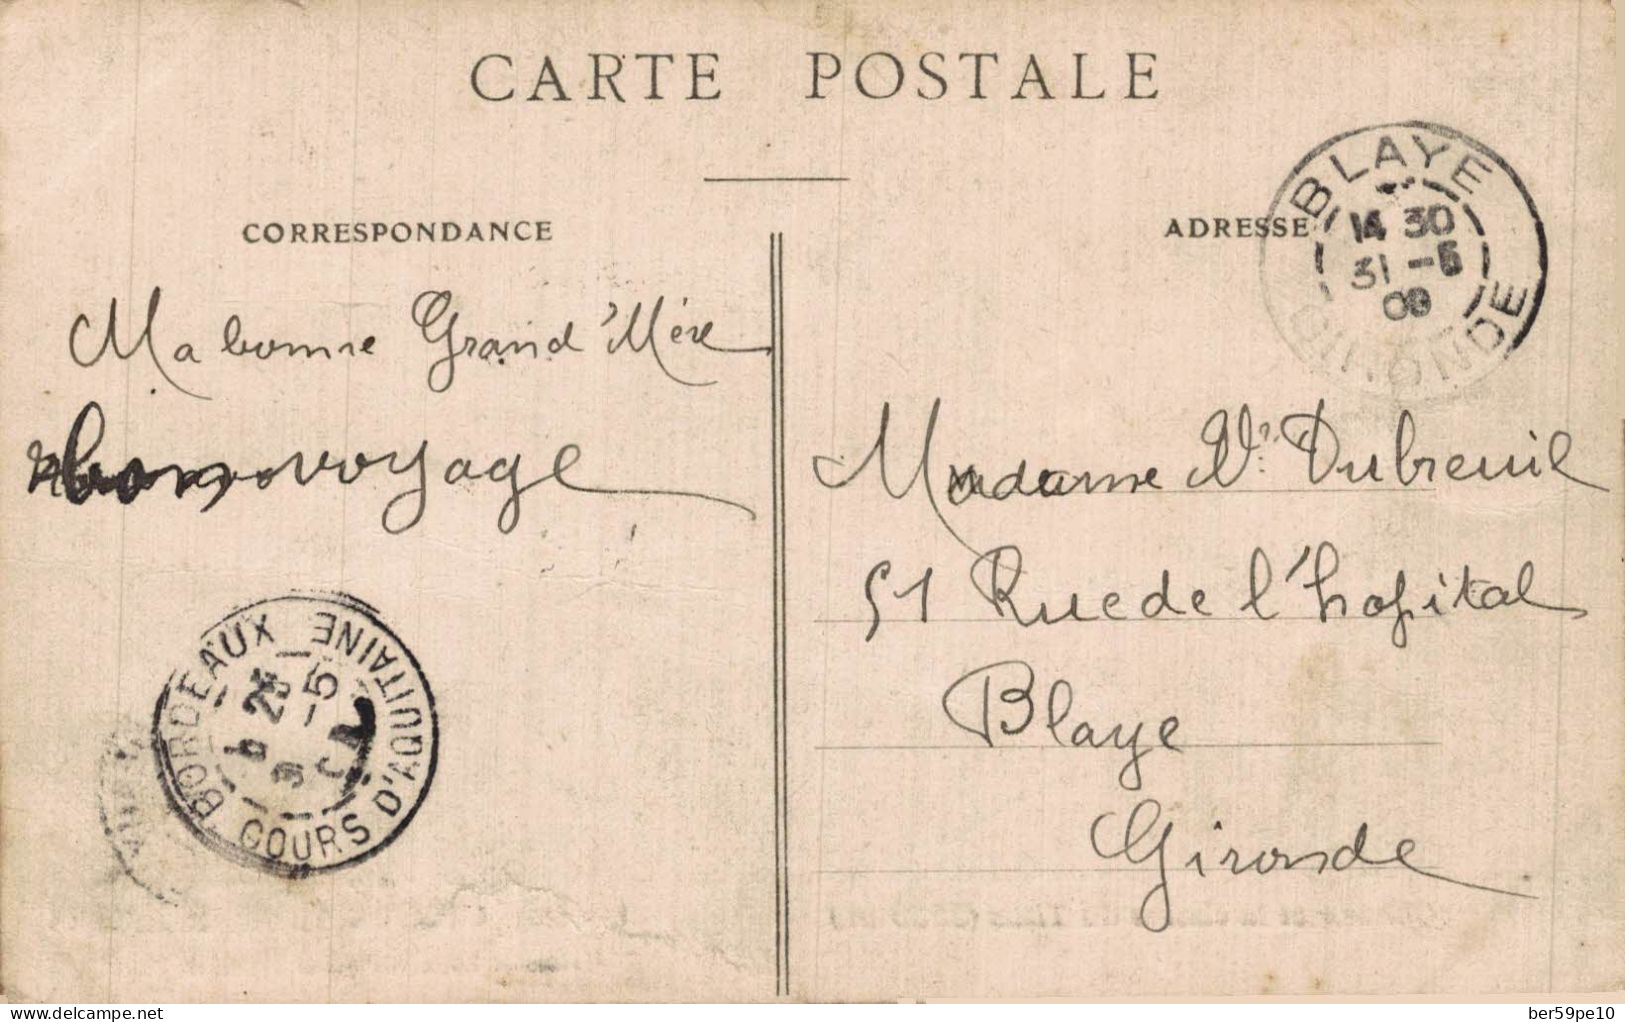 CARTE POSTALE
CORRESPONDANCE
ADRESSE
BLAYE
14 30
31 -5
09
GIRONDE
Ma bonne Grand'Mère
bon voyage
Madame Vve Dubreuil
51 Rue de l'hopital
Blaye
Gironde
BORDEAUX
COURS D'AQUITAINE
-5
delcampe.net
ber59pe10